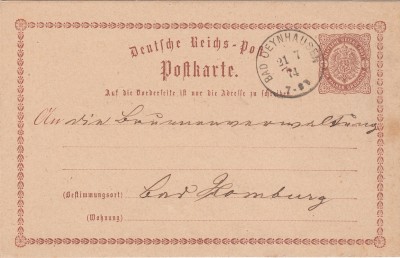 Deutsche Reichs-Post
Postkarte.
BAD OEYNHAUSEN
21 7
74
7-8
Auf die Vorderseite ist nur die Adresse zu schreiben
An die Brunnenverwaltung
(Bestimmungsort) Bad Homburg
(Wohnung)